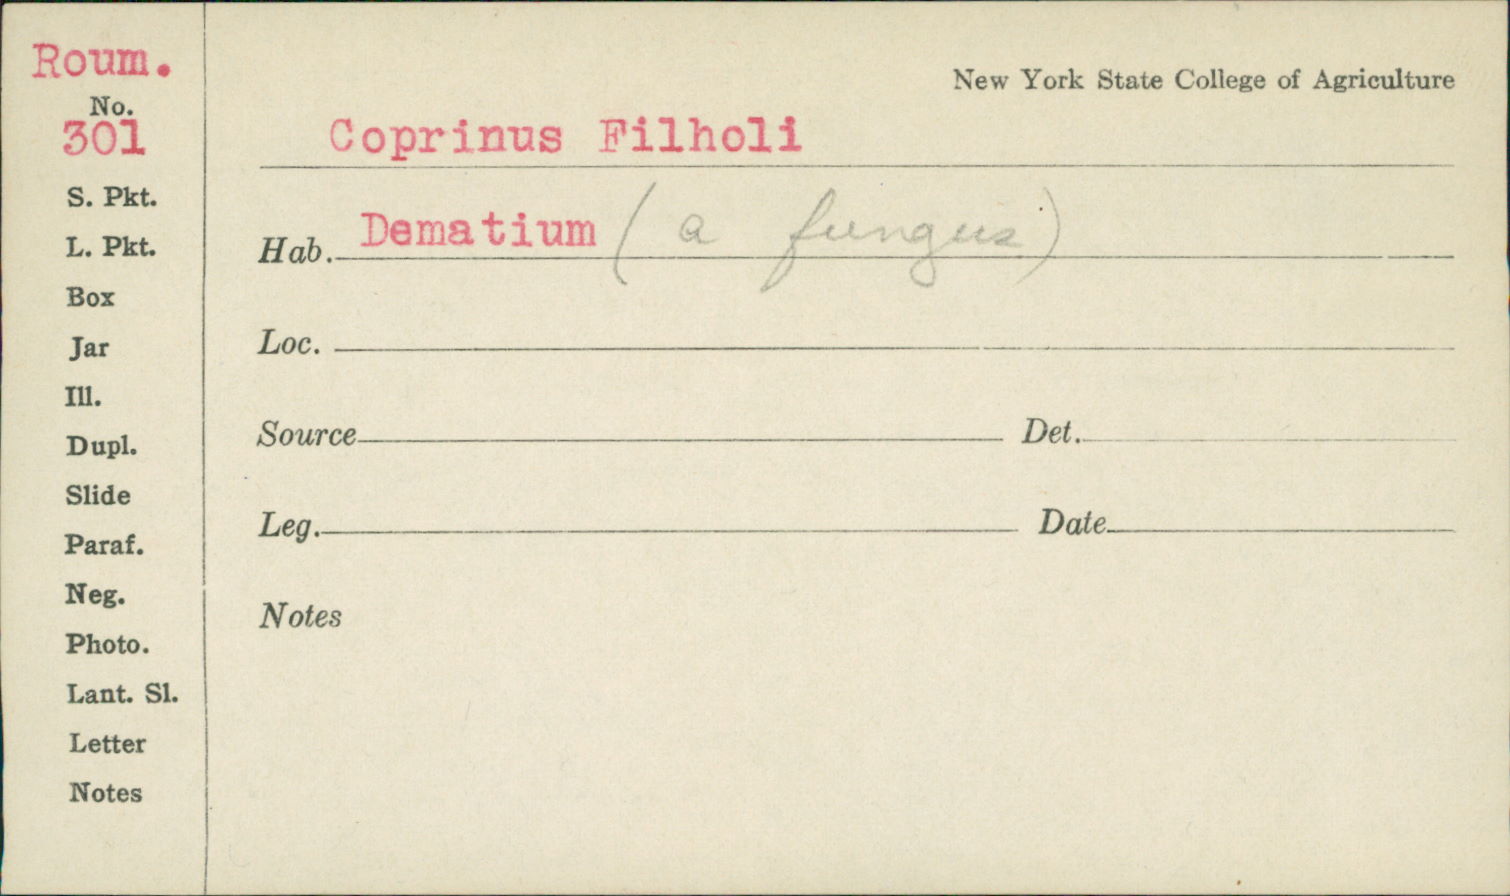 Roum.
No.
301
S. Pkt.
L. Pkt.
Box
Jar
Ill.
Dupl.
Slide
Paraf.
Neg.
Photo.
Lant. Sl.
Letter
Notes
New York State College of Agriculture
Coprinus Filholi
Hab. Dematium (a fungus)
Loc.
Source Det.
Leg. Date
Notes